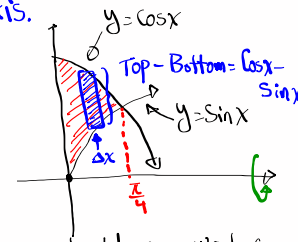 is.
y=Cosx
Top-Bottom=Cosx-
Sinx
y=Sinx
Δx
π/4